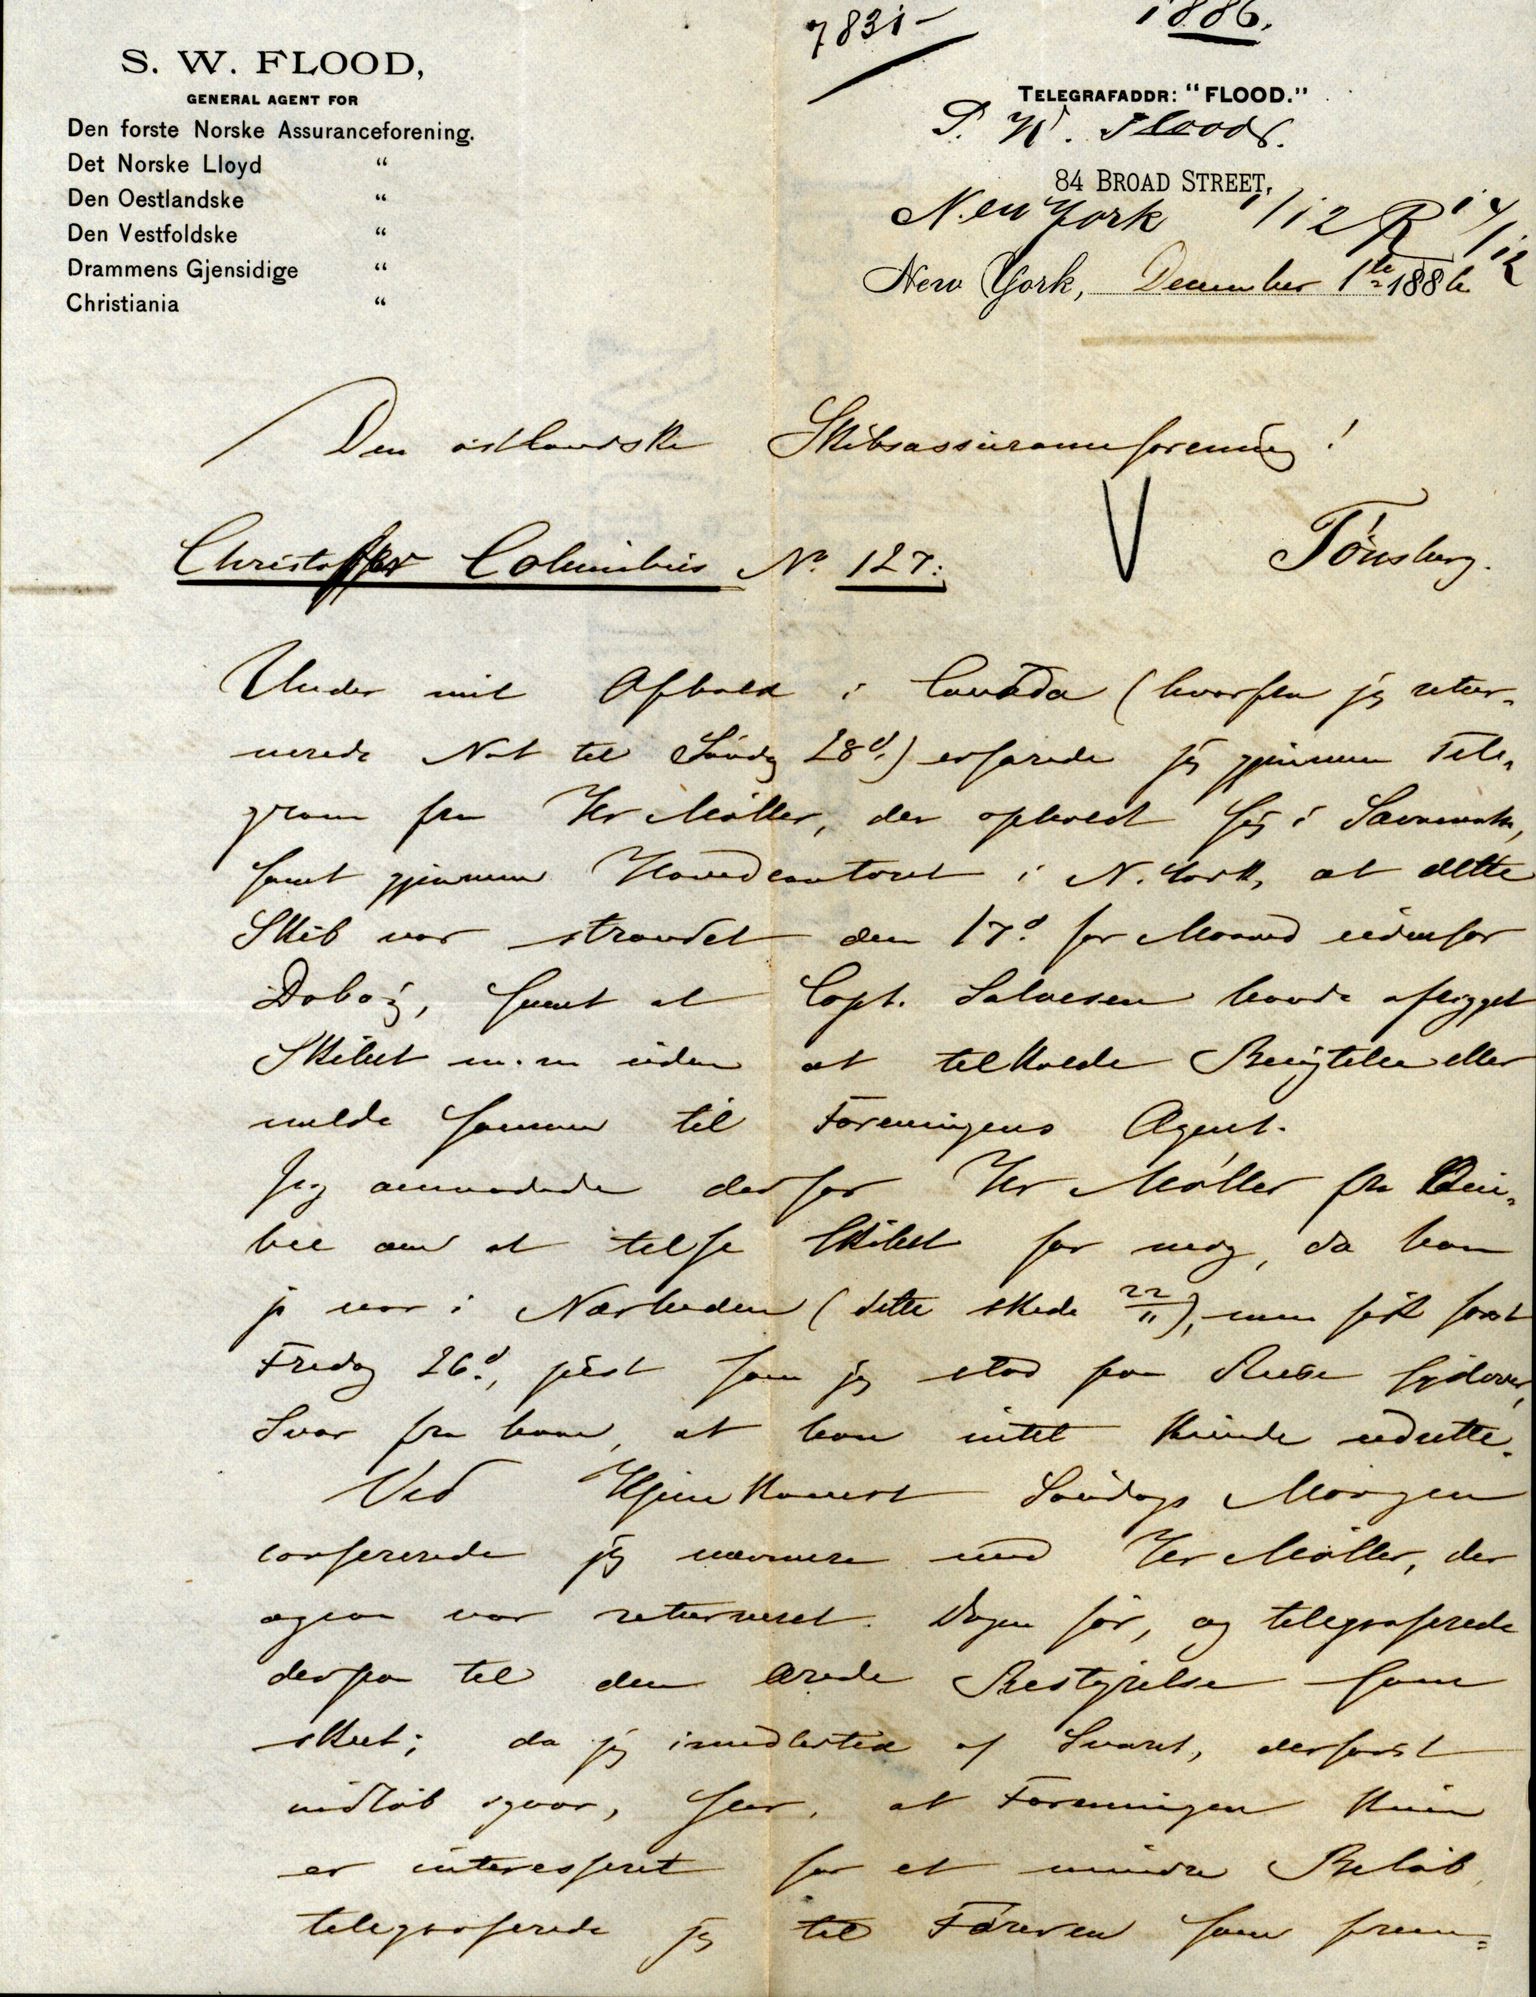 7831-
1886.
S. W. FLOOD,
GENERAL AGENT FOR
Den forste Norske Assuranceforening.
Det Norske Lloyd "
Den Oestlandske "
Den Vestfoldske "
Drammens Gjensidige "
Christiania "
TELEGRAFADDR: "FLOOD."
S. W. Flood.
84 BROAD STREET,
New York 1/12 R 14/12
New York, December 1te 1886
Den østlandske Skibsassuranceforening!
Tönsberg.
Christoffer Columbus No. 127:
Under mit Ophold i Canada (hvorfra jeg retur-
nerede Nat til Söndag 28d.) erfarede jeg gjennem Tele-
gram fra Hr Möller, der opholdt sig i Savannah,
samt gjennem Hovedcontoret i N. York, at dette
Skib var strandet den 17d. for Maaned udenfor
Doboy, samt at Capt. Salvesen havde afrigget
Skibet m.m uden at tilkalde Besigtelse eller
melde samme til Foreningens Agent.
Jeg anmodede derfor Hr Möller fra Que-
bec om at tilse Skibet for meg, da han
jo var i Nærheden (dette skede 22/11), men fik först
Fredag 26d., just som jeg stod paa Reise sydover,
Svar fra ham, at han intet kunde udrette.
Ved Hjemkomst Söndags Morgen
confererede jeg nærmere med Hr Möller, der
ogsaa var returneret Dagen för, og telegraferede
derpaa til den ærede Bestyrelse som
skeet; da jeg imidlertid af Svaret, der först
indlöb igaar, seer, at Foreningen kun
er interesseret for et mindre Belöb,
telegraferede jeg til Föreren som frem=